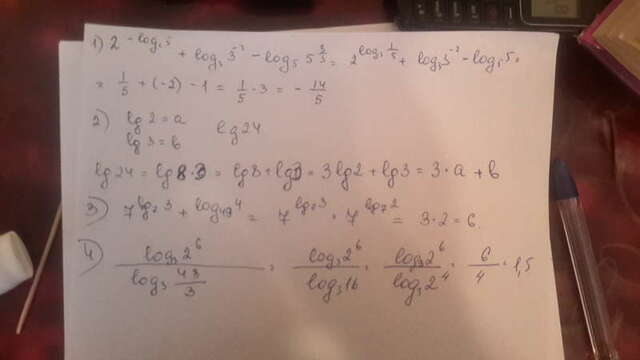 1) 2^(-log₂5) + log₃3⁻² - log₅5^(5/5) = 2^(log₂1/5) + log₃3⁻² - log₅5 =
= 1/5 + (-2) - 1 = 1/5 - 3 = - 14/5
2) lg2 = a
lg3 = b
lg24
lg24 = lg8·3 = lg8 + lg3 = 3lg2 + lg3 = 3·a + b
3) 7^(log₇3) + log₄₉4 = 7^(log₇3) · 7^(log₇2) = 3·2 = 6
4) log₃2⁶ / log₃(48/3) = log₃2⁶ / log₃16 = log₃2⁶ / log₃2⁴ = 6/4 = 1,5